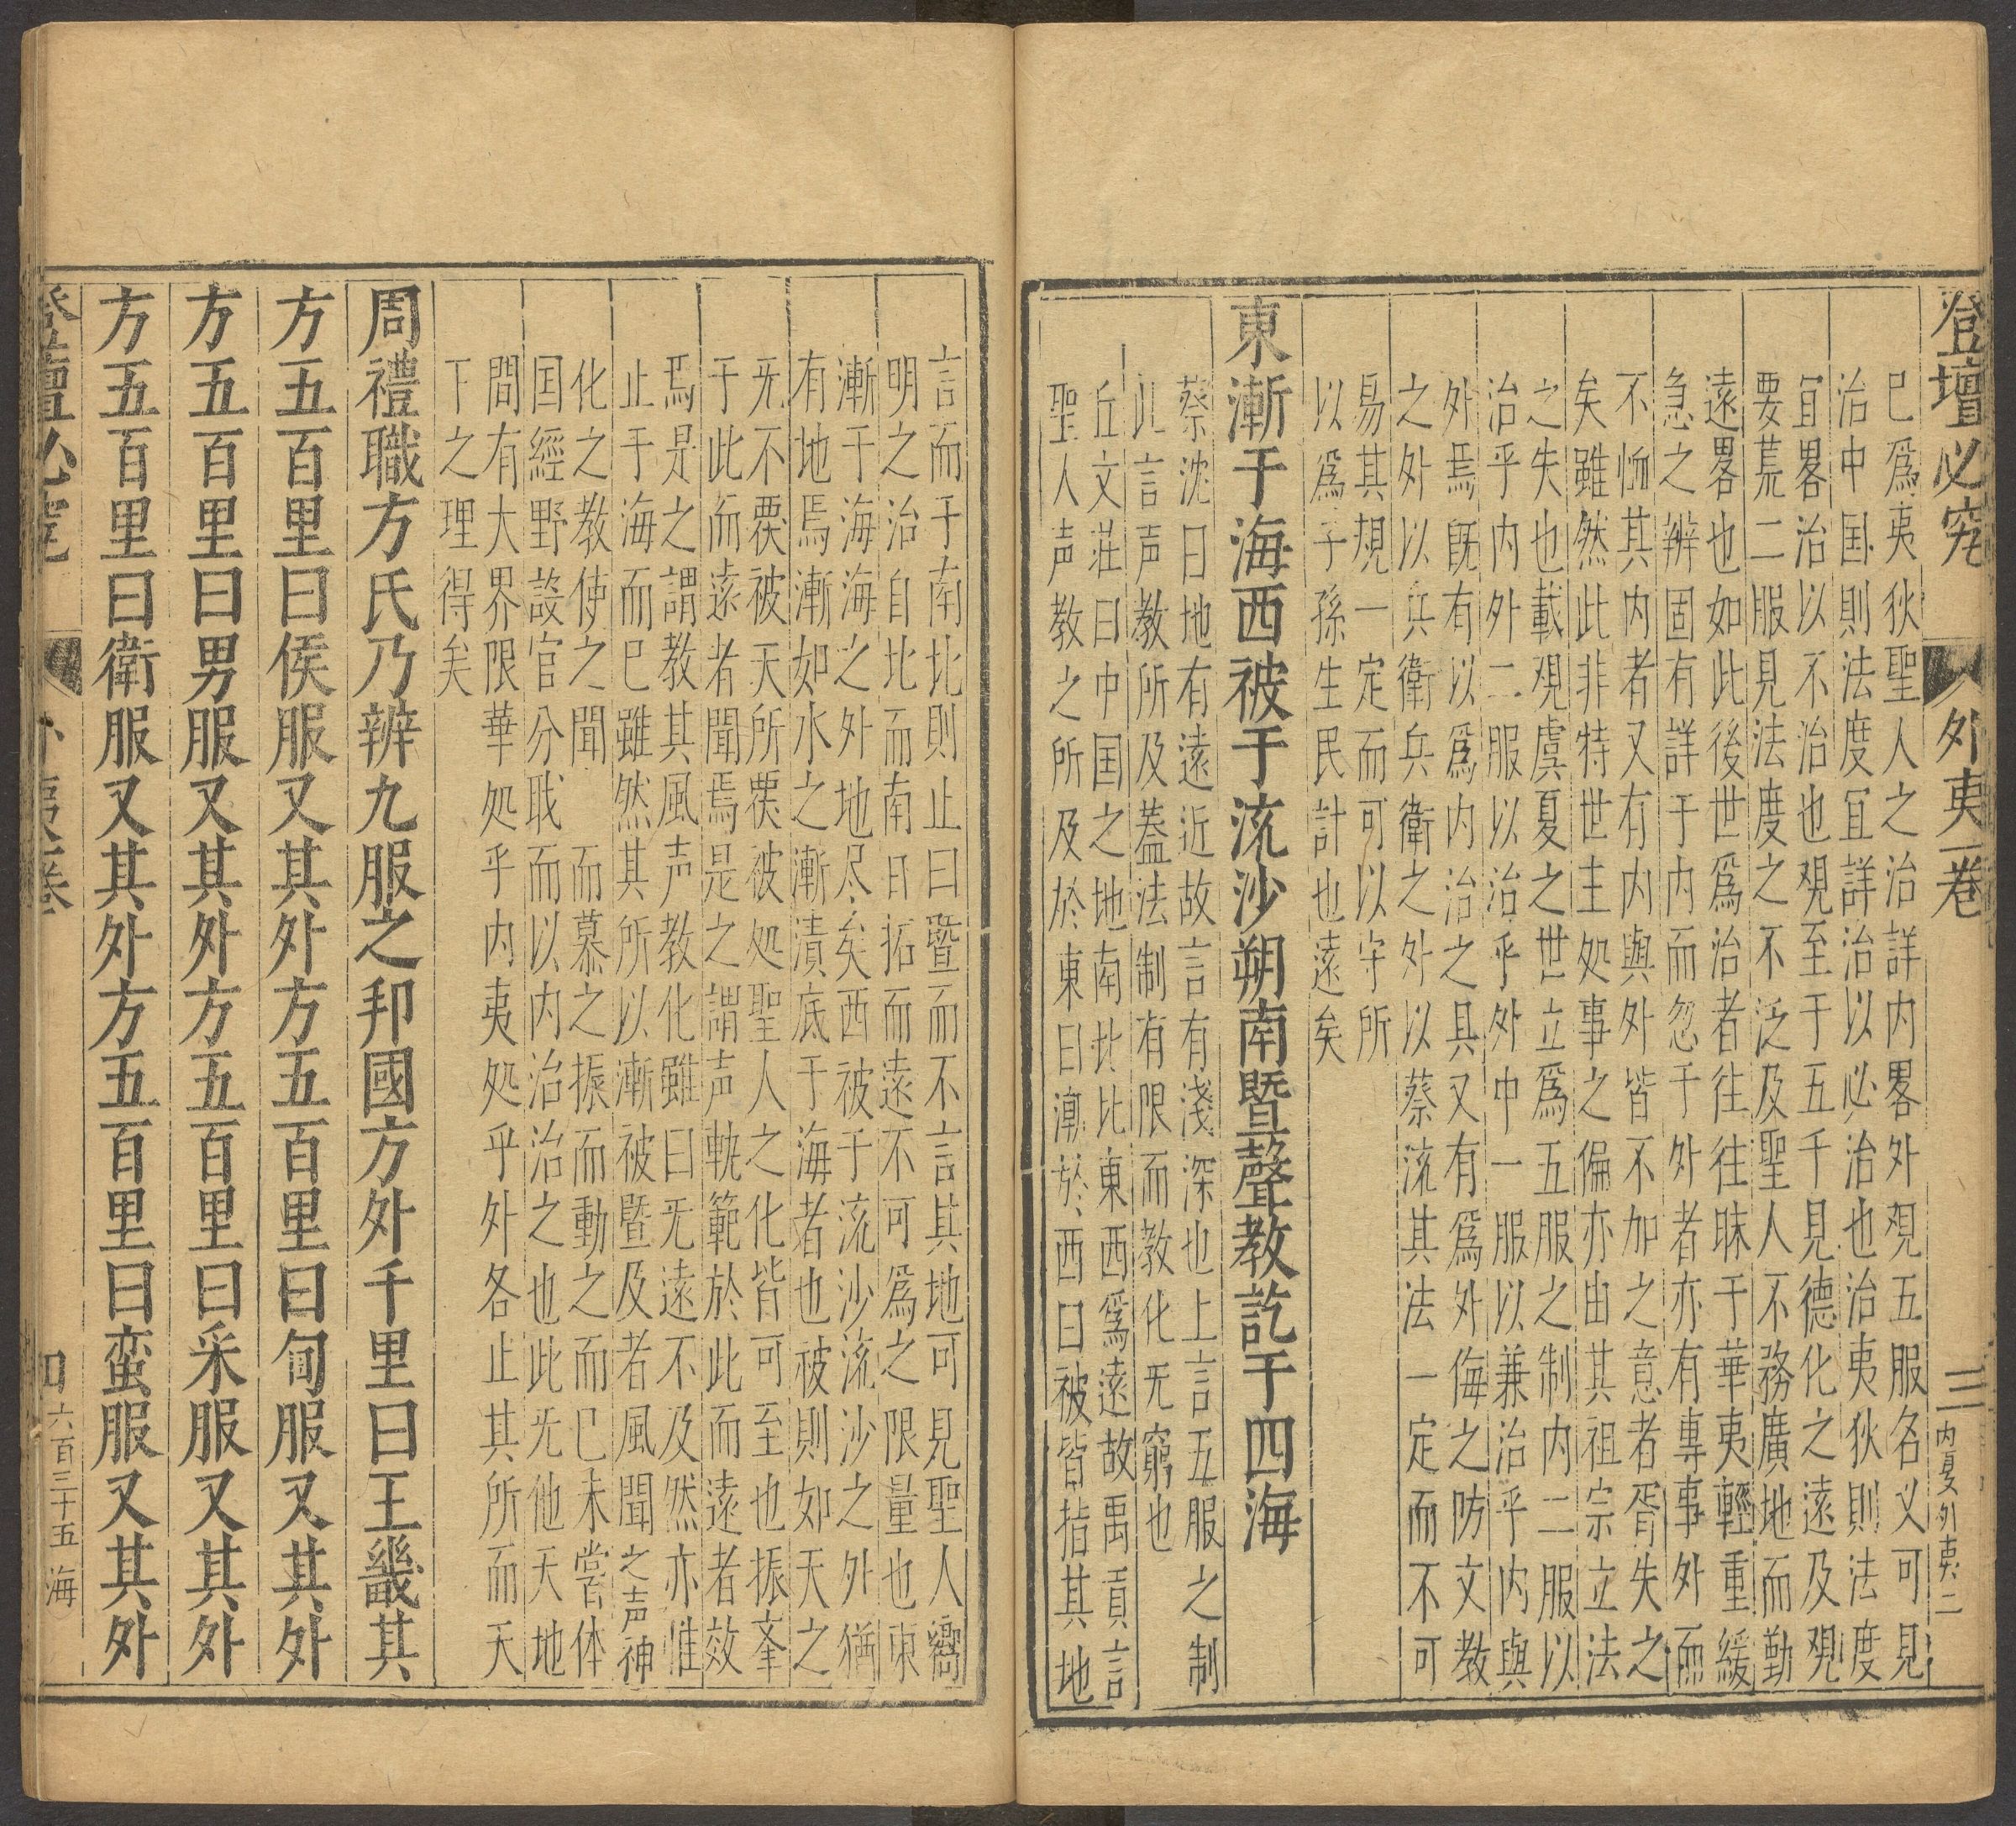 登壇必究 外夷一卷 三 内夏外夷二
已爲夷狄聖人之治詳内畧外覌五服名义可見
治中国則法度宜詳治以必治也治夷狄則法度
宜畧治以不治也覌至于五千見德化之遠及覌
要荒二服見法度之不泛及聖人不務廣地而勤
遠畧也如此後世爲治者往往昧于華夷輕重緩
急之辨固有詳于内而忽于外者亦有專事外而
不恤其内者又有内與外皆不加之意者胥失之
矣雖然此非特世主処事之偏亦由其祖宗立法
之失也載覌虞夏之世立爲五服之制内二服以
治乎内外二服以治乎外中一服以兼治乎内與
外焉既有以爲内治之具又有爲外侮之防文教
之外以兵衛兵衛之外以蔡流其法一定而不可
易其規一定而可以守所
以爲子孫生民計也遠矣
東漸于海西被于流沙朔南暨聲教訖于四海
蔡沈曰地有遠近故言有淺深也上言五服之制
此言声教所及蓋法制有限而教化旡窮也
丘文莊曰中国之地南北比東西爲遠故禹貢言
聖人声教之所及於東曰漸於西曰被皆指其地
言而于南北則止曰暨而不言其地可見聖人嚮
明之治自北而南日拓而遠不可爲之限量也東
漸于海海之外地尽矣西被于流沙流沙之外猶
有地焉漸如水之漸漬底于海者也被則如天之
旡不霑被天所霑被処聖人之化皆可至也振峯
于此而遠者聞焉是之謂声軌範於此而遠者效
焉是之謂教其風声教化雖曰旡遠不及然亦惟
止于海而已雖然其所以漸被暨及者風聞之声神
化之教使之聞而慕之振而動之而已未嘗体
国經野設官分職而以内治治之也此旡他天地
間有大界限華処乎内夷処乎外各止其所而天
下之理得矣
周禮職方氏乃辨九服之邦國方外千里曰王畿其
方五百里曰侯服又其外方五百里曰甸服又其外
方五百里曰男服又其外方五百里曰采服又其外
方五百里曰衛服又其外方五百里曰蛮服又其外
登壇必究 外夷一卷 六百三十五 海